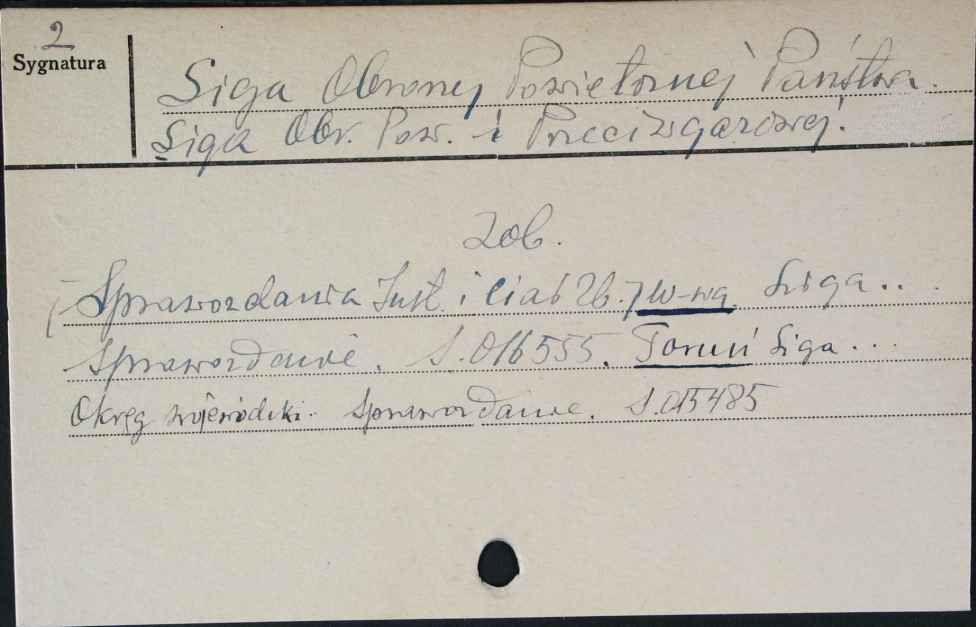 2
Sygnatura
Liga Obrony Powietrznej Państwa.
Liga Obr. Pow. i Przeciwgazowej.
Zob.
Sprawozdania Inst. i ciał Zb. 7 W-wa. Liga...
Sprawozdanie. S.016555. Toruń Liga...
Okręg wojewódzki. Sprawozdanie. S.015485